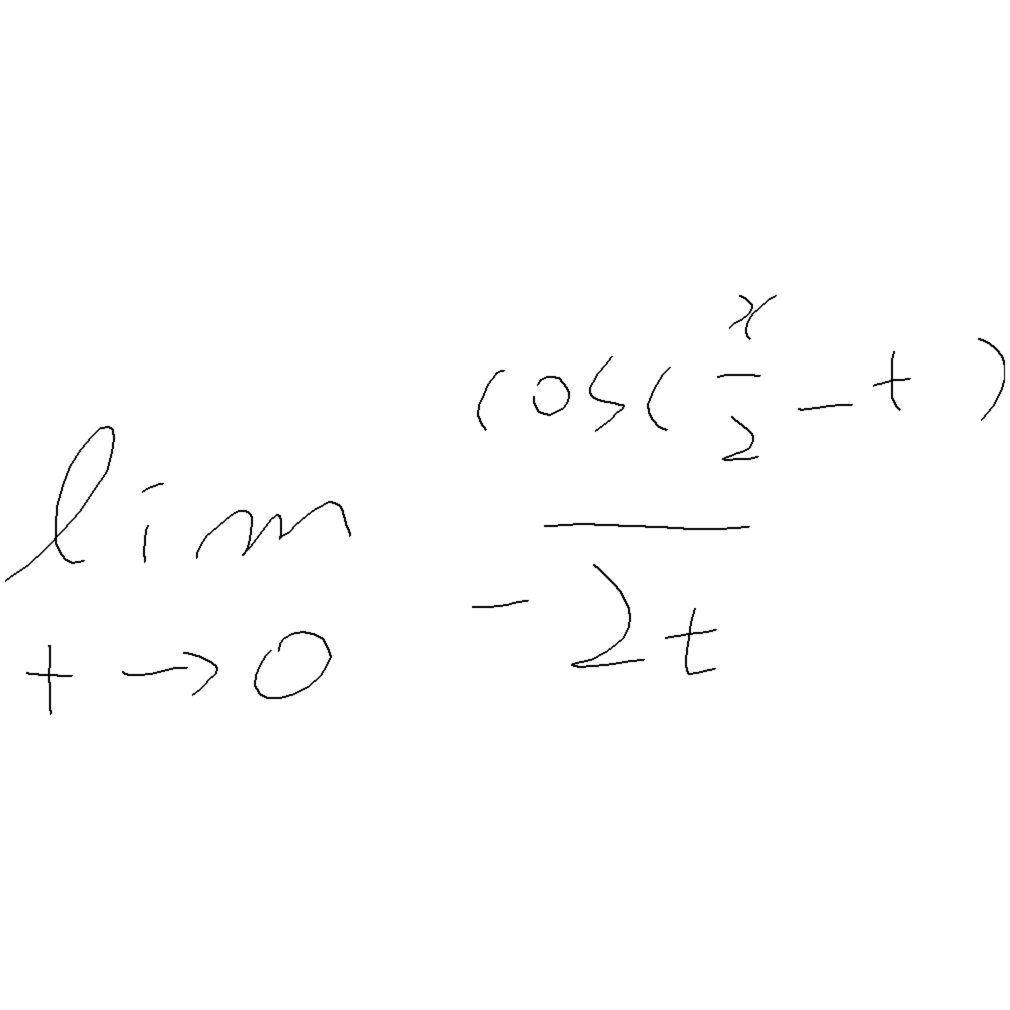 lim
t → 0
cos(x/2 - t)
-2t